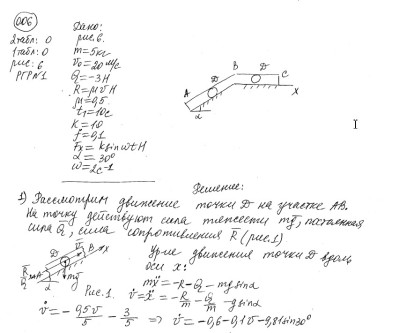 006
2табл: 0
1табл: 0
рис: 6
РГР№1
Дано:
рис. 6.
m=5кг
v₀=20м/с
Q=-3Н
R=μvН
μ=0,5
t₁=10с
K=10
f=0,1
Fx=ksinωtН
α=30°
ω=2с⁻¹
A
D
B
D
C
x
α
Решение:
1) Рассмотрим движение точки D на участке AB.
На точку действуют сила тяжести mg, постоянная
сила Q, сила сопротивления R (рис.1)
Ур-ие движения точки D вдоль
оси x:
mv̇=-R-Q-mgsinα
v̇=ẍ=-R/m-Q/m-gsinα
R
Q
A
D
v
B
x
α
mg
Рис. 1.
v̇=-0,5v/5-3/5 => v̇=-0,6-0,1v-9,81sin30°